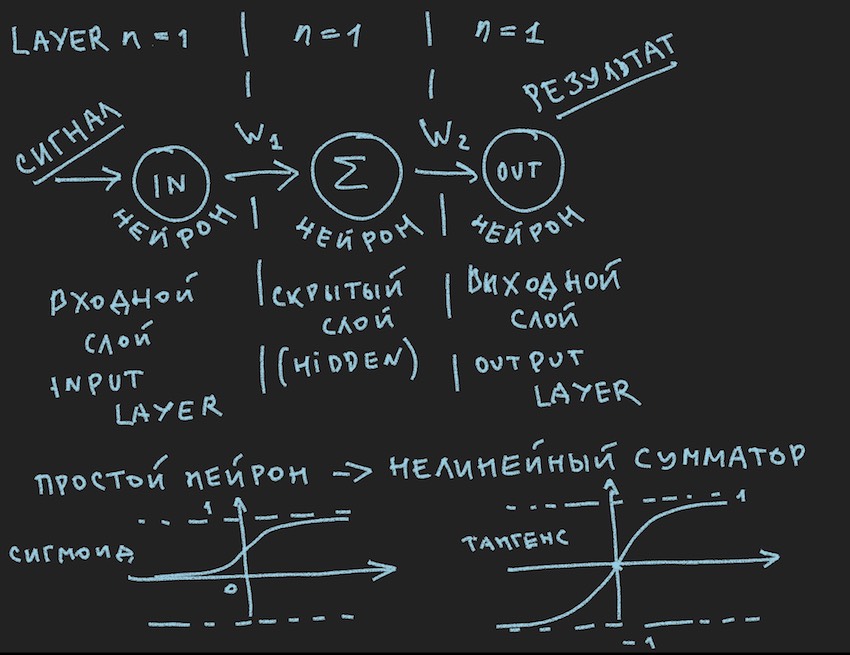 LAYER n = 1 | n = 1 | n = 1
РЕЗУЛЬТАТ
СИГНАЛ
W1
W2
IN
Σ
OUT
НЕЙРОН
НЕЙРОН
НЕЙРОН
ВХОДНОЙ
СЛОЙ
INPUT
LAYER
СКРЫТЫЙ
СЛОЙ
(HiDDEN)
ВЫХОДНОЙ
СЛОЙ
OUTPUT
LAYER
ПРОСТОЙ НЕЙРОН -> НЕЛИНЕЙНЫЙ СУММАТОР
1
СИГМОИД
0
1
ТАНГЕНС
-1